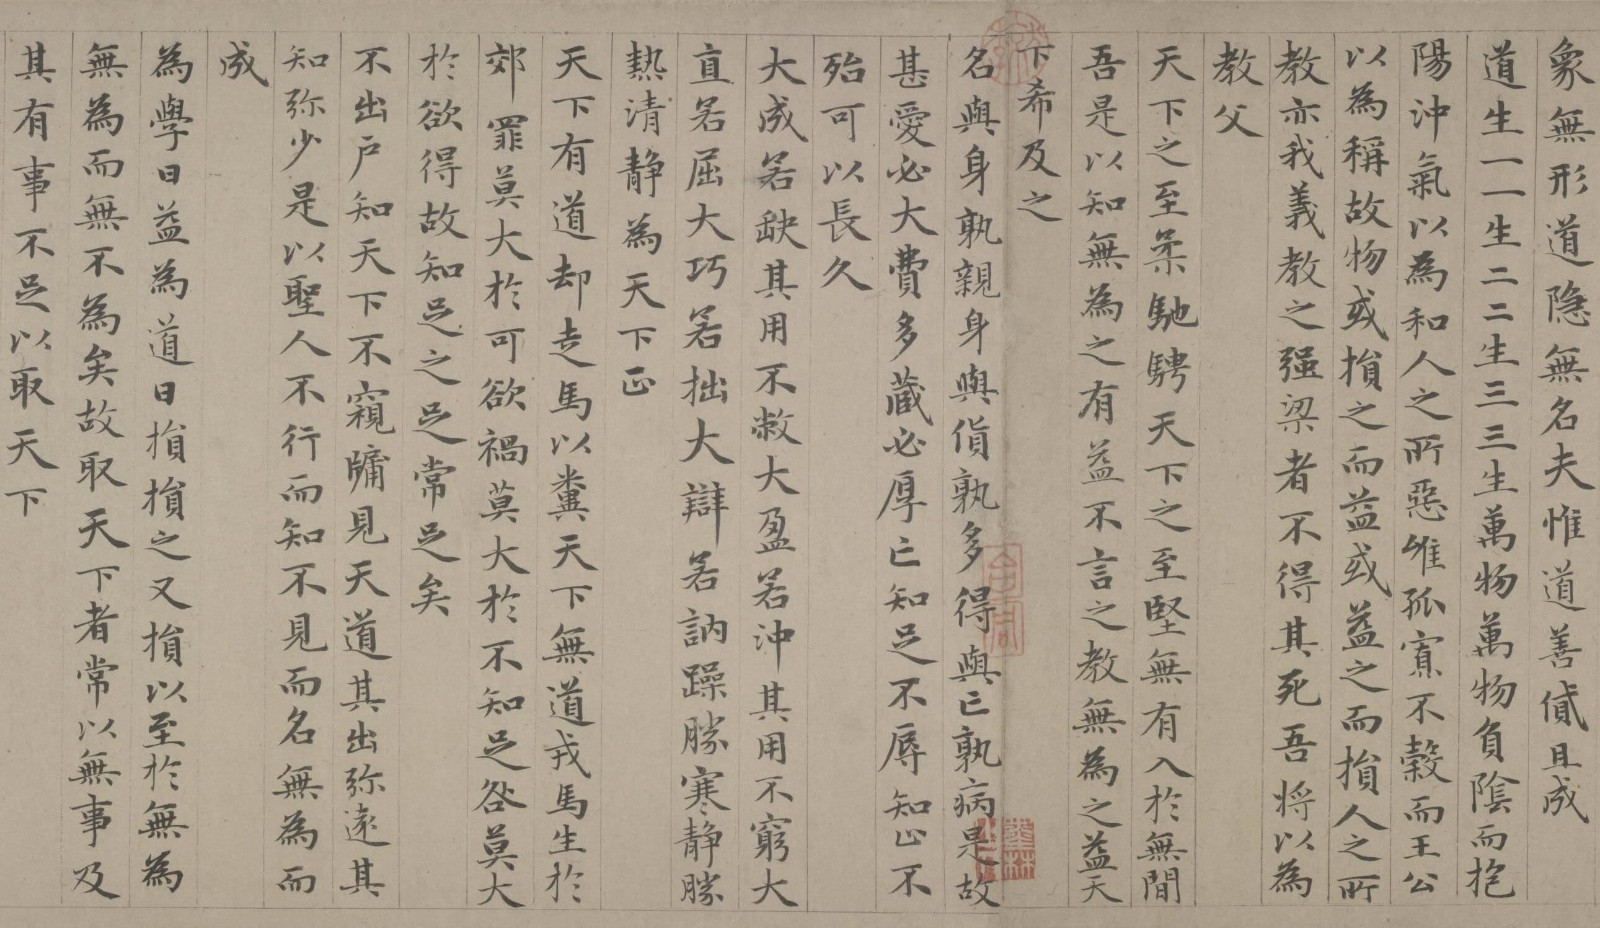 象無形道隱無名夫惟道善貸且成
道生一一生二二生三三生萬物萬物負陰而抱
陽沖氣以為和人之所惡唯孤寡不穀而王公
以為稱故物或損之而益或益之而損人之所
教亦我義教之强梁者不得其死吾將以為
教父
天下之至柔馳騁天下之至堅無有入於無間
吾是以知無為之有益不言之教無為之益天
下希及之
名與身孰親身與貨孰多得與亡孰病是故
甚愛必大費多藏必厚亡知足不辱知止不
殆可以長久
大成若缺其用不敝大盈若沖其用不窮大
直若屈大巧若拙大辯若訥躁勝寒静勝
熱清静為天下正
天下有道却走馬以糞天下無道戎馬生於
郊罪莫大於可欲禍莫大於不知足咎莫大
於欲得故知足之足常足矣
不出户知天下不窺牖見天道其出弥遠其
知弥少是以聖人不行而知不見而名無為而
成
為學日益為道日損損之又損以至於無為
無為而無不為矣故取天下者常以無事及
其有事不足以取天下